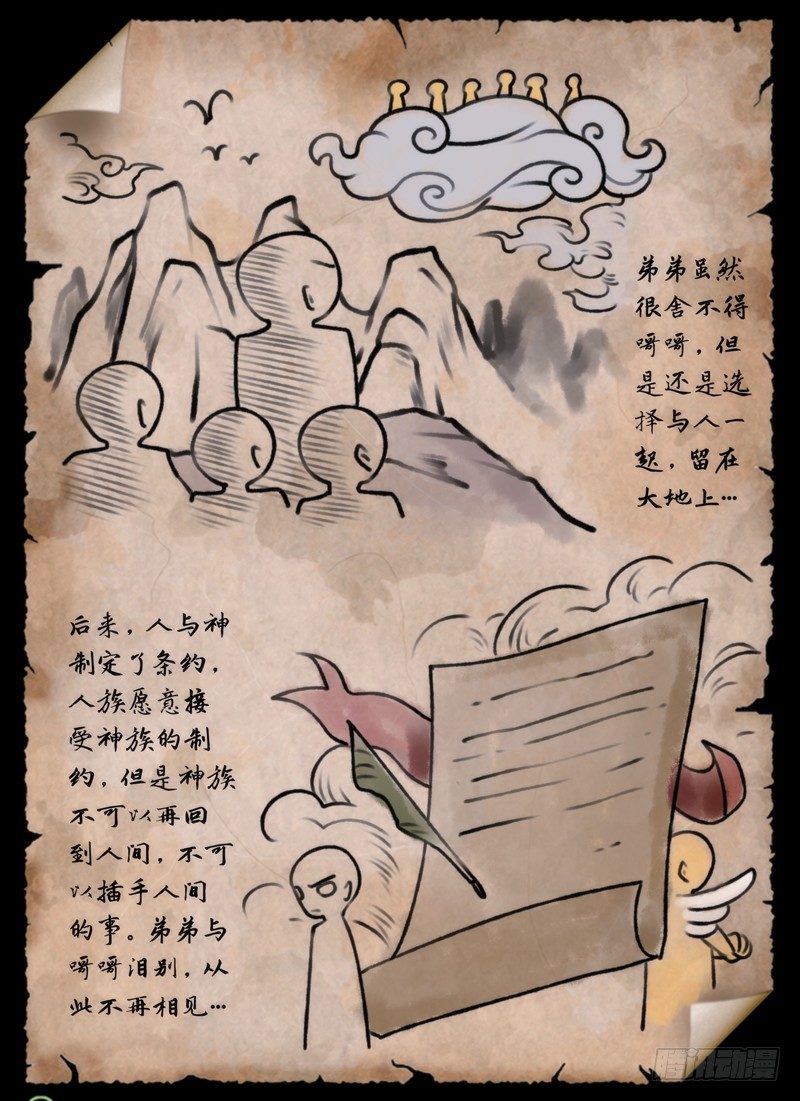 弟弟虽然
很舍不得
哥哥，但
是还是选
择与人一
起，留在
大地上…
后来，人与神
制定了条约，
人族愿意接
受神族的制
约，但是神族
不可以再回
到人间，不可
以插手人间
的事。弟弟与
哥哥泪别，从
此不再相见…
腾讯动漫